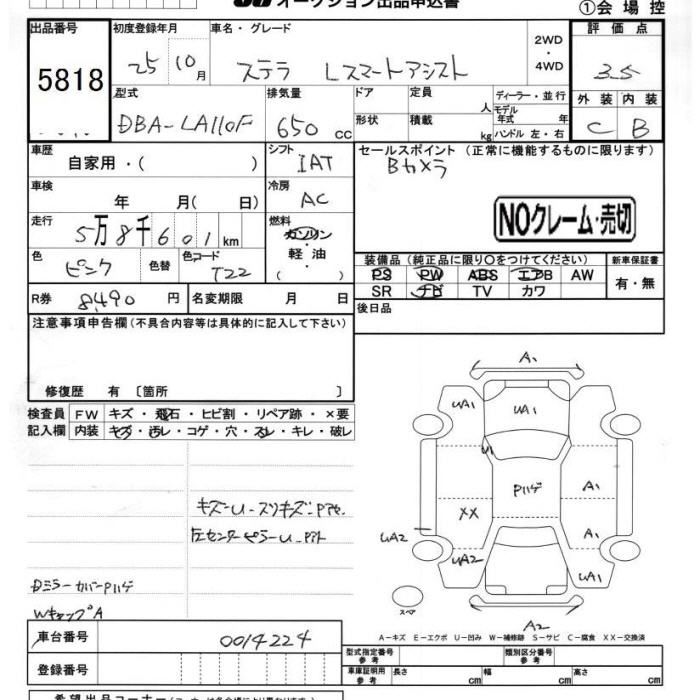 オークション出品申込書
①会場控
出品番号 初度登録年月 車名・グレード 評価点
5818 25 10月 ステラ Lスマートアシスト 2WD ・ 4WD 3.5
型式 排気量 ドア 定員 人 ディーラー・並行 外装 内装
DBA-LA110F 650 cc 形状 積載 kg モデル年式 年 ハンドル 左・右 C B
車歴 自家用・( ) シフト IAT セールスポイント (正常に機能するものに限ります)
Bカメラ
車検 年 月( 日) 冷房 AC
NOクレーム・売切
走行 5万8千601km 燃料 ガソリン・軽油 ( )
色 ピンク 色替 色コード T22
装備品(純正品に限り○をつけてください) 新車保証書
PS PW ABS エアB AW 有・無
SR ナビ TV カワ
R券 8,490円 名変期限 月 日 後日品
注意事項申告欄(不具合内容等は具体的に記入して下さい)
修復歴 有 〔箇所 〕
検査員 FW キズ・飛石・ヒビ割・リペア跡・×要
記入欄 内装 キズ・汚レ・コゲ・穴・スレ・キレ・破レ
A1
UA1 UA1
U1
Pハゲ A1
XX A1
UA2 UA2 UA1
スペア
A2
キズ-U-スリキズ-Pアセ.
左センターピラーU-Pハゲ
Dミラーカバーpハゲ
WキャップA
A-キズ E-エクボ U-凹み W-補修跡 S-サビ C-腐食 XX-交換済
車台番号 0014224
型式指定番号 参考 類別区分番号 参考
登録番号 車庫証明用 参考 長さ cm 幅 cm 高さ cm
希望出品コーナー